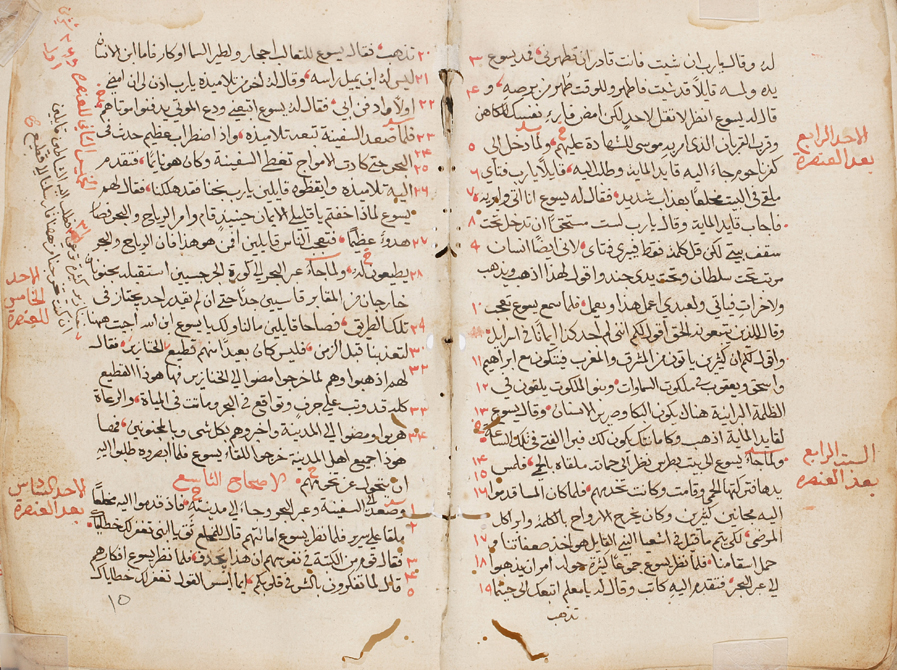 له وقال يا رب ان شيت فانت قادر ان تطهرني فمد يسوع ٣
يده ولمسه قايلاً قد شيت فاطهر وللوقت طهر من برصه و ٤
قال له يسوع انظر لا تقل لاحد لكن امض فار نفسك للكاهن
وقرب القربان الذي امر به موسى للشهادة عليهم ولما دخل الى ٥
كفرناحوم جاء اليه قايد الماية وطلب اليه قايلاً يا رب فتاي ٦
ملقى في البيت مخلعاً بعذاب شديد فقال له يسوع انا اتي وابريه ٧
فاجاب قايد الماية وقال يا رب لست مستحقاً ان تدخل تحت ٨
سقف بيتي لكن قل كلمة فقط فيبري فتاي لاني ايضاً انسان ٩
مرتب تحت سلطان وتحت يدي جند واقول لهذا اذهب فيذهب
ولاخر ات فياتي ولعبدي اعمل هذا فيعمل فلما سمع يسوع تعجب ١٠
وقال للذين يتبعونه الحق اقول لكم انني لم اجد كهذا ايماناً في اسرايل
واقول لكم ان كثيرين ياتون من المشرق والمغرب فيتكون مع ابراهيم ١١
واسحق ويعقوب في ملكوت السماوات وبنو الملكوت يلقون في ١٢
الظلمة البرانية هناك يكون البكا وصرير الاسنان وقال يسوع ١٣
لقايد الماية اذهب وكما امنت يكون لك فبرا الفتى في تلك الساعة
ولما جاء يسوع الى بيت بطرس نظر الى حماته ملقاه بالحمى فلمس ١٤ ١٥
يدها فتركتها الحمى وقامت وكانت تخدمهم فلما كان المسا قدموا ١٦
اليه مجانين كثيرين وكان يخرج الارواح بالكلمة وابرا كل
المرضى لكي يتم ما قيل في اشعيا النبي القايل هو اخذ ضعفاتنا و ١٧
حمل اسقامنا فلما نظر يسوع جموعاً كثيرة حوله امر ان يذهبوا ١٨
الى عبر البحر فتقدم اليه كاتب وقال له يا معلم اتبعك الى حيثما ١٩
تذهب
الاحد الرابع
بعد العنصره
السبت الرابع
بعد العنصره
٢٠ تذهب فقال له يسوع للثعالب احجار ولطير السما اوكار فاما ابن الانسان
٢١ ليس له اين يميل راسه وقال له اخر من تلاميذه يا رب اذن لي ان امضي
٢٢ اولاً وادفن ابي فقال له يسوع اتبعني ودع الموتى يدفنوا موتاهم
٢٣ فلما صعد السفينة تبعه تلاميذه واذ اضطراب عظيم حدث في
٢٤ ٢٥ البحر حتى كادت الامواج تغطي السفينة وكان هو نايماً فتقدم
٢٦ اليه تلاميذه وايقظوه قايلين يا رب نجنا فقد هلكنا فقال لهم
يسوع لماذا خفتم يا قليلي الايمان حينيذ قام وامر الرياح والبحر فصار
٢٧ هدوء عظيماً فتعجب الناس قايلين اي هو هذا فان الرياح والبحر
٢٨ يطيعون له ولما جاء عبر البحر الى كورة الجرجسيين استقبله مجنونان
خارجان من المقابر قاسيين جداً حتى ان لم يقدر احد يجتاز في
٢٩ تلك الطريق فصاحا قايلين ما لنا ولك يا يسوع ابن الله اجيت ههنا
٣٠ لتعذبنا قبل الزمن فليس كان بعيداً منهم قطيع الخنازير فقال
٣٢ لهم اذهبوا وهم لما خرجوا مضوا الى الخنازير فها هوذا القطيع
كله قد وثب على جرف وتواقع في البحر ومات في المياة والرعاة
٣٣ هربوا ومضوا الى المدينة واخبروهم بكل شي وبالمجنونين فها
٣٤ هوذا جميع اهل المدينة خرجوا للقاء يسوع فلما ابصروه طلبوا اليه
ان يتحول عن تخومهم الاصحاح التاسع
١ وصعد السفينة وعبر البحر وجاء الى مدينته فاذ قدموا اليه مخلعاً
٢ ملقا على سرير فلما نظر يسوع امانتهم قال للمخلع ثق يا ابني تغفر لك خطاياك
٣ فقال قوم من الكتبة في نفوسهم ان هذا يجدف فلما نظر يسوع افكارهم
٤ ٥ قال لماذا تفكرون بالشر في قلوبكم ايما ايسر القول تغفر لك خطاياك
١٥
الاحد
الخامس
للعنصره
الاحد السادس
بعد العنصره